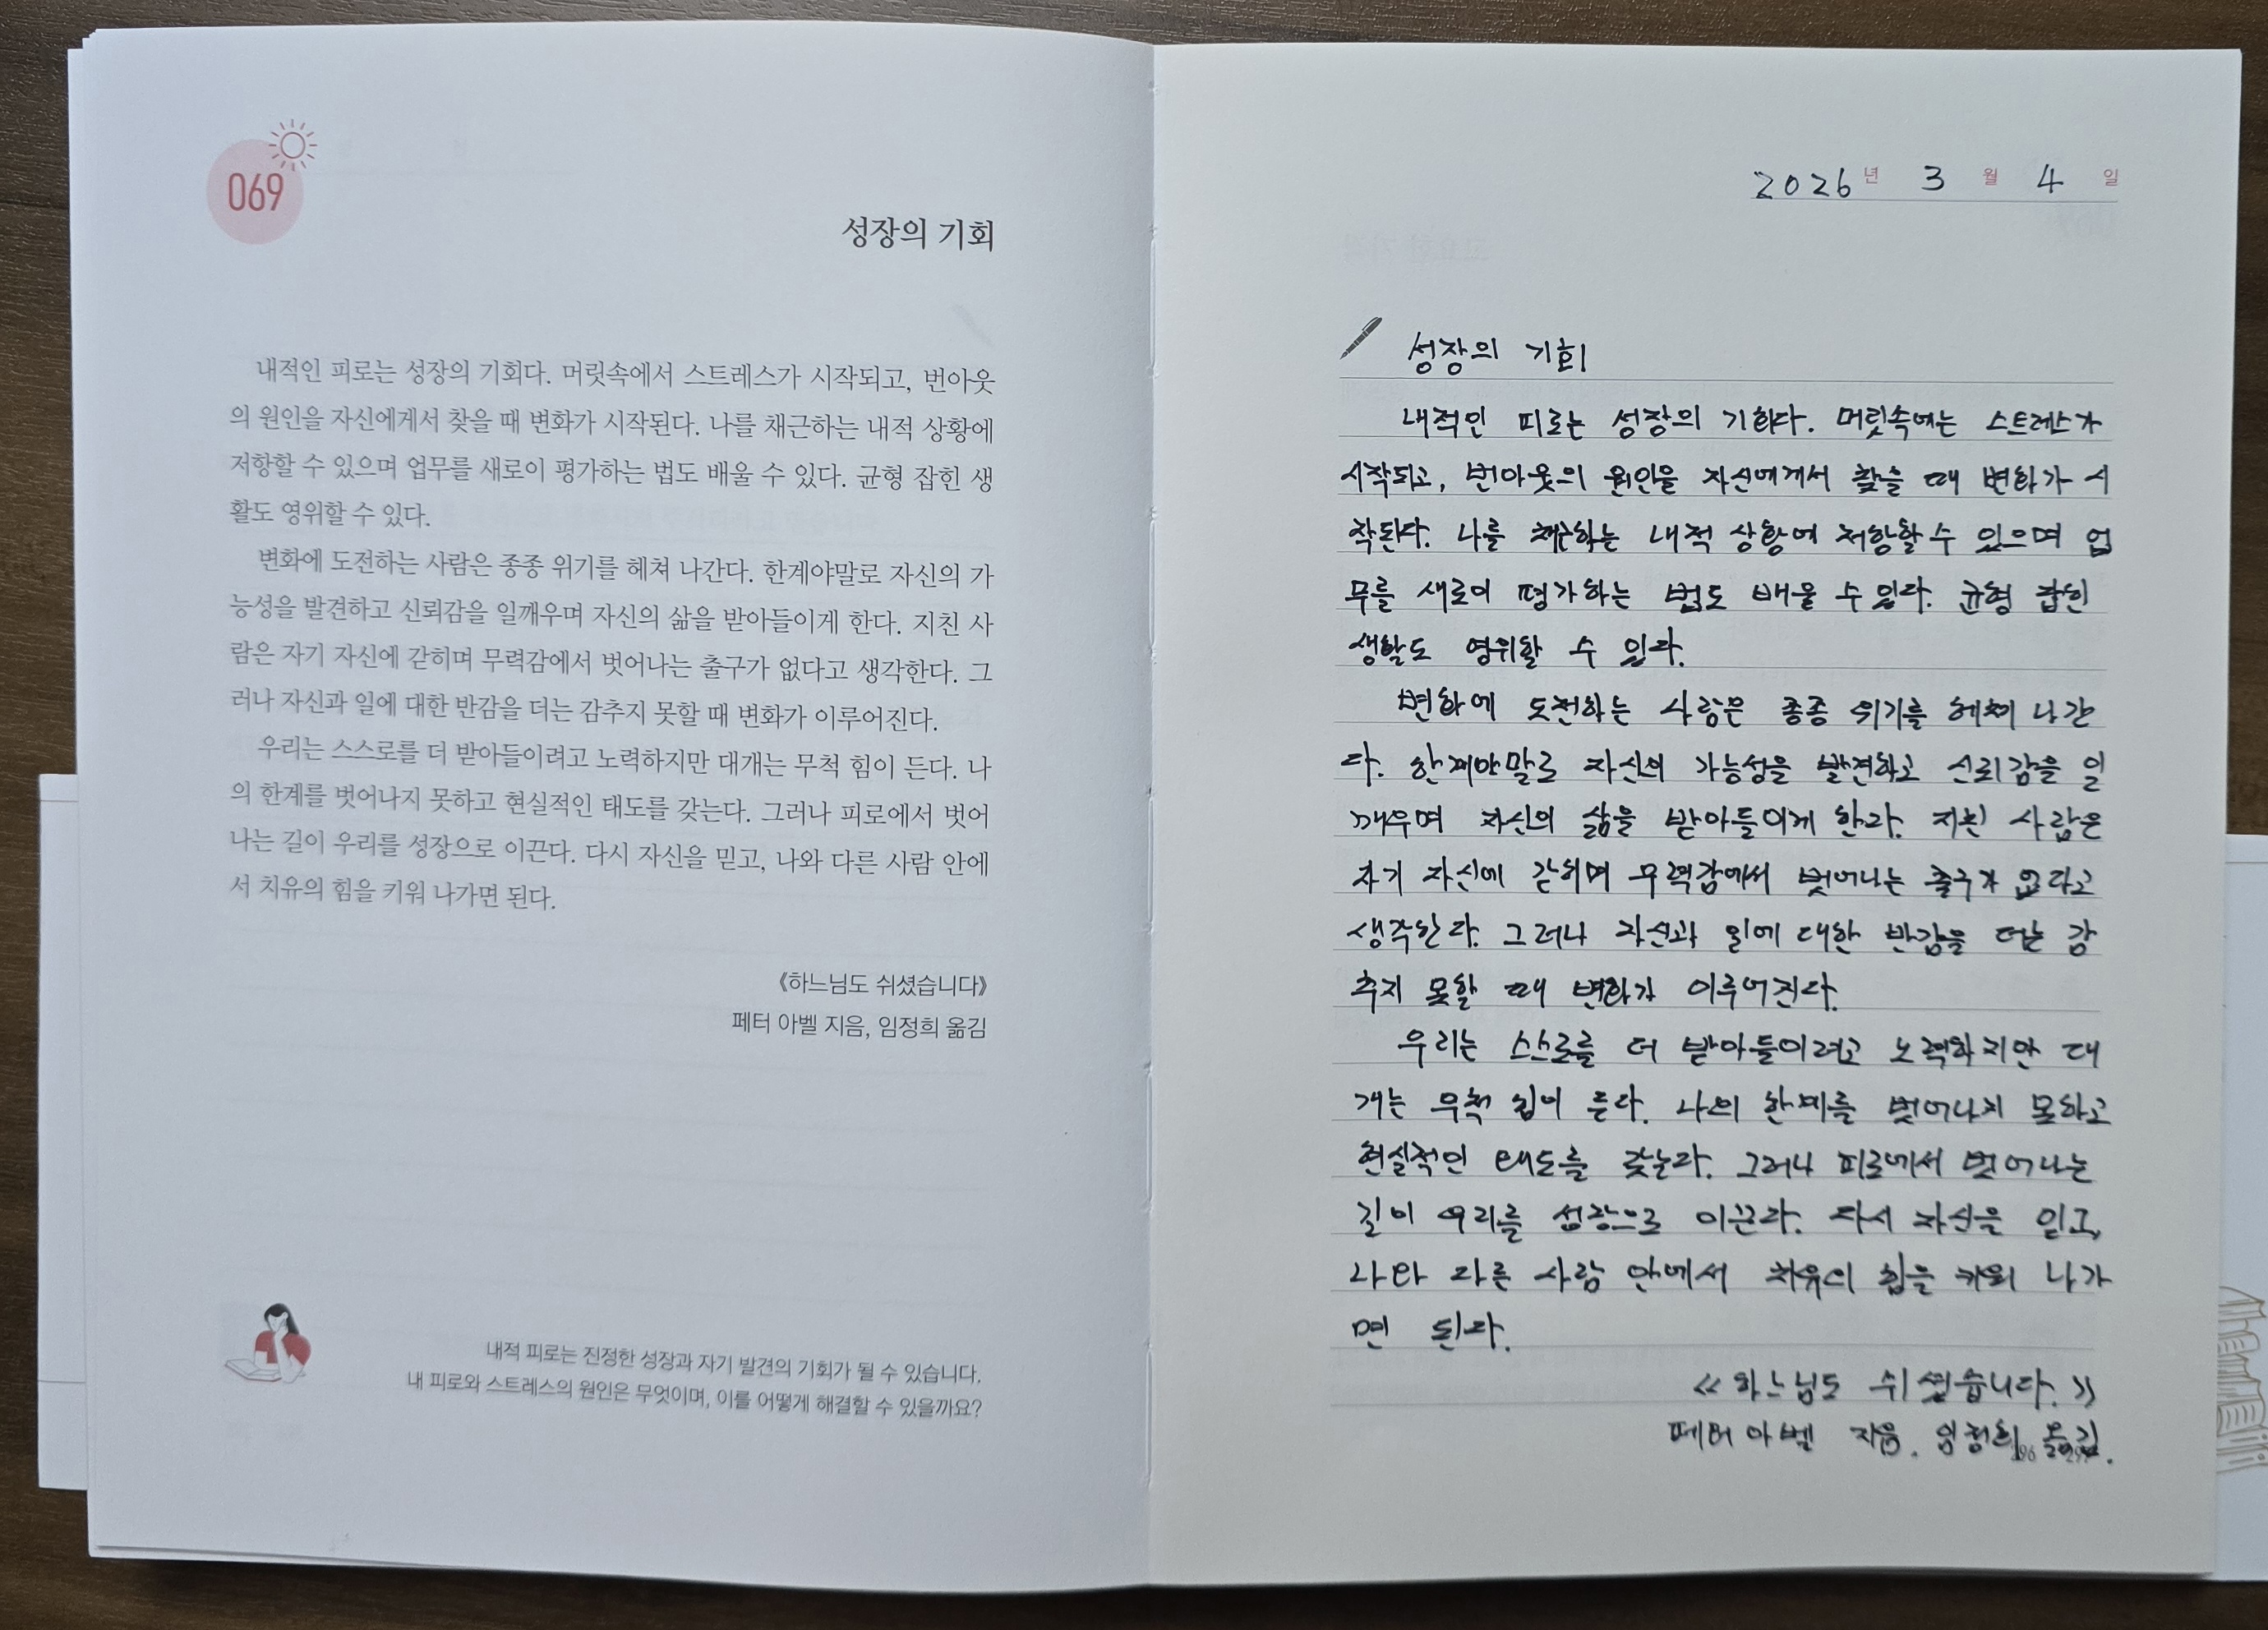 069
성장의 기회
내적인 피로는 성장의 기회다. 머릿속에서 스트레스가 시작되고, 번아웃
의 원인을 자신에게서 찾을 때 변화가 시작된다. 나를 채근하는 내적 상황에
저항할 수 있으며 업무를 새로이 평가하는 법도 배울 수 있다. 균형 잡힌 생
활도 영위할 수 있다.
변화에 도전하는 사람은 종종 위기를 헤쳐 나간다. 한계야말로 자신의 가
능성을 발견하고 신뢰감을 일깨우며 자신의 삶을 받아들이게 한다. 지친 사
람은 자기 자신에 갇히며 무력감에서 벗어나는 출구가 없다고 생각한다. 그
러나 자신과 일에 대한 반감을 더는 감추지 못할 때 변화가 이루어진다.
우리는 스스로를 더 받아들이려고 노력하지만 대개는 무척 힘이 든다. 나
의 한계를 벗어나지 못하고 현실적인 태도를 갖는다. 그러나 피로에서 벗어
나는 길이 우리를 성장으로 이끈다. 다시 자신을 믿고, 나와 다른 사람 안에
서 치유의 힘을 키워 나가면 된다.
《하느님도 쉬셨습니다》
페터 아벨 지음, 임정희 옮김
내적 피로는 진정한 성장과 자기 발견의 기회가 될 수 있습니다.
내 피로와 스트레스의 원인은 무엇이며, 이를 어떻게 해결할 수 있을까요?
2026년 3월 4일
성장의 기회
내적인 피로는 성장의 기회다. 머릿속에는 스트레스가
시작되고, 번아웃의 원인을 자신에게서 찾을 때 변화가 시
작된다. 나를 채근하는 내적 상황에 저항할 수 있으며 업
무를 새로이 평가하는 법도 배울 수 있다. 균형 잡힌
생활도 영위할 수 있다.
변화에 도전하는 사람은 종종 위기를 헤쳐 나간
다. 한계야말로 자신의 가능성을 발견하고 신뢰감을 일
깨우며 자신의 삶을 받아들이게 한다. 지친 사람은
자기 자신에 갇히며 무력감에서 벗어나는 출구가 없다고
생각한다. 그러나 자신과 일에 대한 반감을 더는 감
추지 못할 때 변화가 이루어진다.
우리는 스스로를 더 받아들이려고 노력하지만 대
개는 무척 힘이 든다. 나의 한계를 벗어나지 못하고
현실적인 태도를 갖는다. 그러나 피로에서 벗어나는
길이 우리를 성장으로 이끈다. 다시 자신을 믿고,
나와 다른 사람 안에서 치유의 힘을 키워 나가
면 된다.
《하느님도 쉬셨습니다.》
페터 아벨 지음. 임정희 옮김.